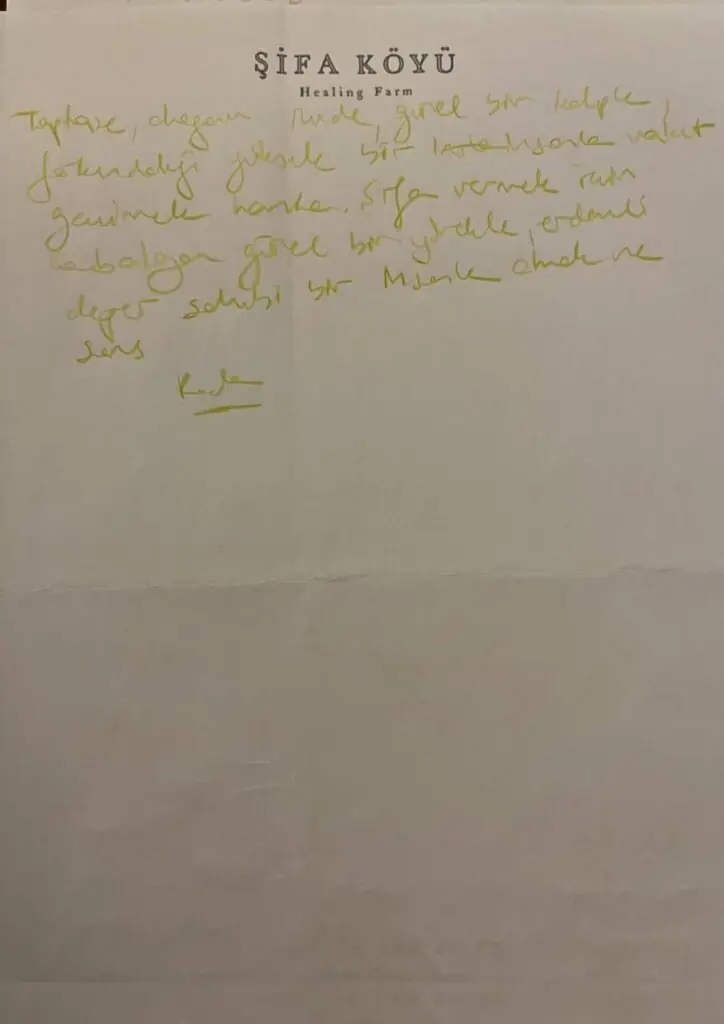 ŞİFA KÖYÜ
Healing Farm
Taptaze, doğanın içinde, güzel bir kalple,
farkındalığı yüksek bir insanla vakit
geçirmek harika. Şifa vermek için
çabalayan güzel bir yürekle, erdemli
değer sahibi bir insanla olmak ne
şans